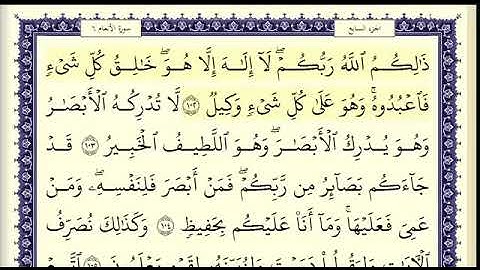 سورة الأنعام ٦ الجزء السابع
ذَٰلِكُمُ ٱللَّهُ رَبُّكُمْ ۖ لَآ إِلَٰهَ إِلَّا هُوَ ۖ خَٰلِقُ كُلِّ شَىْءٍ
فَٱعْبُدُوهُ ۚ وَهُوَ عَلَىٰ كُلِّ شَىْءٍ وَكِيلٌ ١٠٢ لَّا تُدْرِكُهُ ٱلْأَبْصَٰرُ
وَهُوَ يُدْرِكُ ٱلْأَبْصَٰرَ ۖ وَهُوَ ٱللَّطِيفُ ٱلْخَبِيرُ ١٠٣ قَدْ
جَآءَكُم بَصَآئِرُ مِن رَّبِّكُمْ ۖ فَمَنْ أَبْصَرَ فَلِنَفْسِهِۦ ۖ وَمَنْ
عَمِىَ فَعَلَيْهَا ۚ وَمَآ أَنَا۠ عَلَيْكُم بِحَفِيظٍ ١٠٤ وَكَذَٰلِكَ نُصَرِّفُ